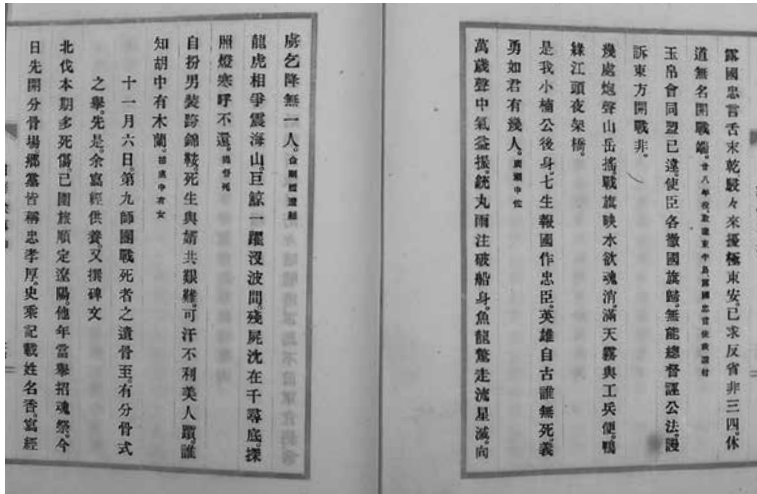 露國忠言舌未乾駸々來擾極東安。已求反省非三四。休
道無名開戰端。廿八年役取遼東半島露國忠言使我還付
玉帛會同盟已違。使臣各徹國旗歸。無能總督誣公法。謾
訴東方開戰非。
幾處炮聲山岳搖。戰旗映水欲魂消。滿天霧與工兵便。鴨
綠江頭夜架橋。
是我小楠公後身。七生報國作忠臣。英雄自古誰無死。義
勇如君有幾人。廣瀨中佐
萬歲聲中氣益振。銃丸雨注破船身。魚龍驚走流星滅。向
虜乞降無一人。金州丸遭難
龍虎相爭震海山。巨鯨一躍沒波間。殘屍沈在千尋底。探
照燈寒呼不還。
自扮男裝跨錦鞍。死生與婿共艱難。可汗不利美人蹟。誰
知胡中有木蘭。
十一月六日。第九師團戰死者之遺骨至。有分骨式
之擧。先是。余寫經供養。又撰碑文
北伐本期多死傷。已圍旅順定遼陽。他年當擧招魂祭。今
日先開分骨場。鄕黨皆稱忠孝厚。史乘記載姓名香。寫經